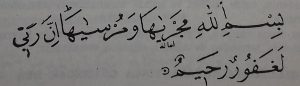 بِسْمِ اللّٰهِ مَجْرٖىهَا وَمُرْسٰىهَا اِنَّ رَبِّيْ
لَغَفُوْرٌ رَّحِيْمٌ